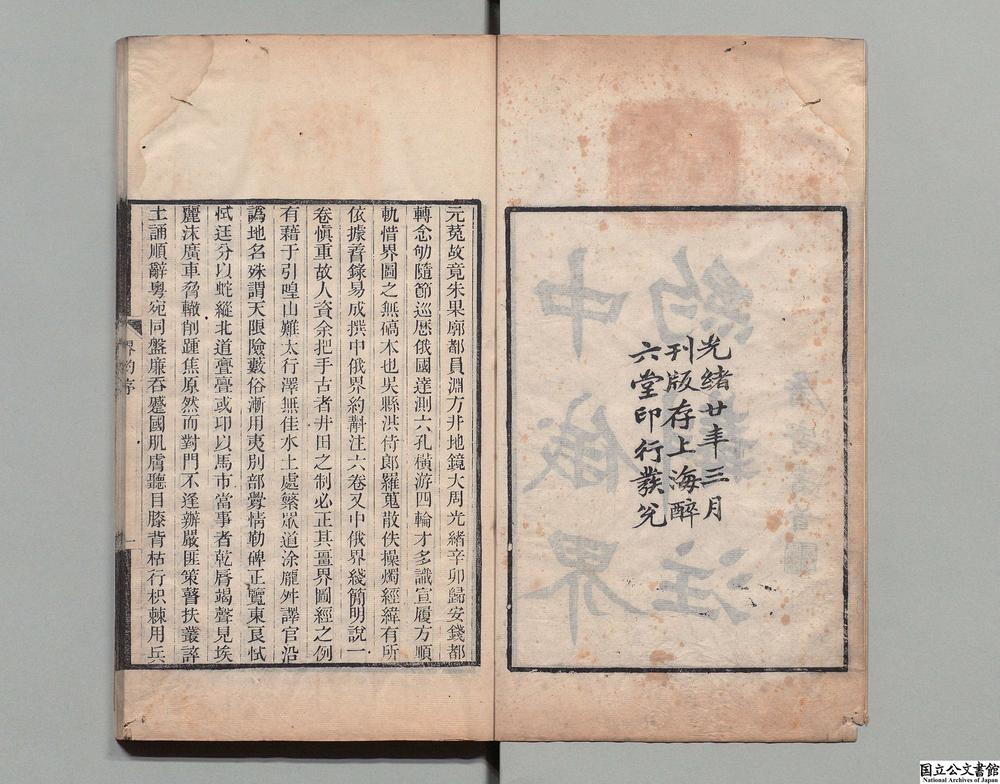 光緒廿年三月
刊版存上海醉
六堂印行發兌
元菟故竟朱果廓都員淵方井地鏡大周光緒辛卯歸安錢都
轉念劬隨節巡歷俄國達測六孔橫游四輪才多識宣履方順
軌惜界圖之無碻本也吳縣洪侍郎羅蒐散佚操燭經緯有所
依據著錄易成撰中俄界約斠注六卷又中俄界綫簡明說一
卷愼重故人資余把手古者井田之制必正其畺界圖經之例
有藉于引喤山難太行澤無佳水土處繁眾道涂龐舛譯官沿
譌地名殊謂天限險藪俗漸用夷別部釁情勒碑正覽東
廷分以蛇縱北道亹亹或卬以馬市當事者乾脣竭聲見埃
麗沫廣車脅轍削踵焦原然而對門不逢辦嚴匪策瞽扶叢誶
土誦順辭粵宛同盤廉吞蹙國肌膚聽目膝背枯行枳棘用兵
界約序
一
国立公文書館
National Archives of Japan